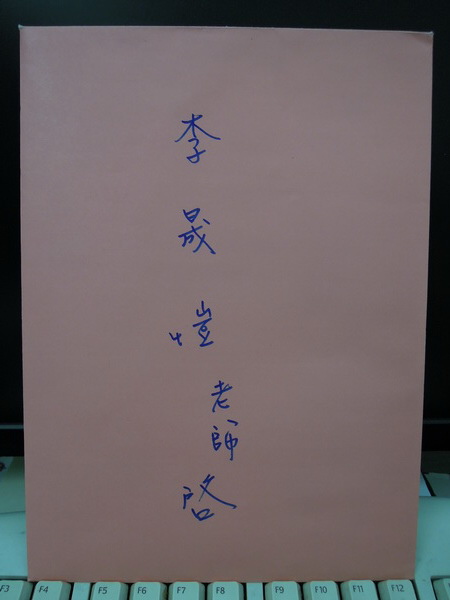 李晟愷老師啟
F3 F4 F5 F6 F7 F8 F9 F10 F11 F12